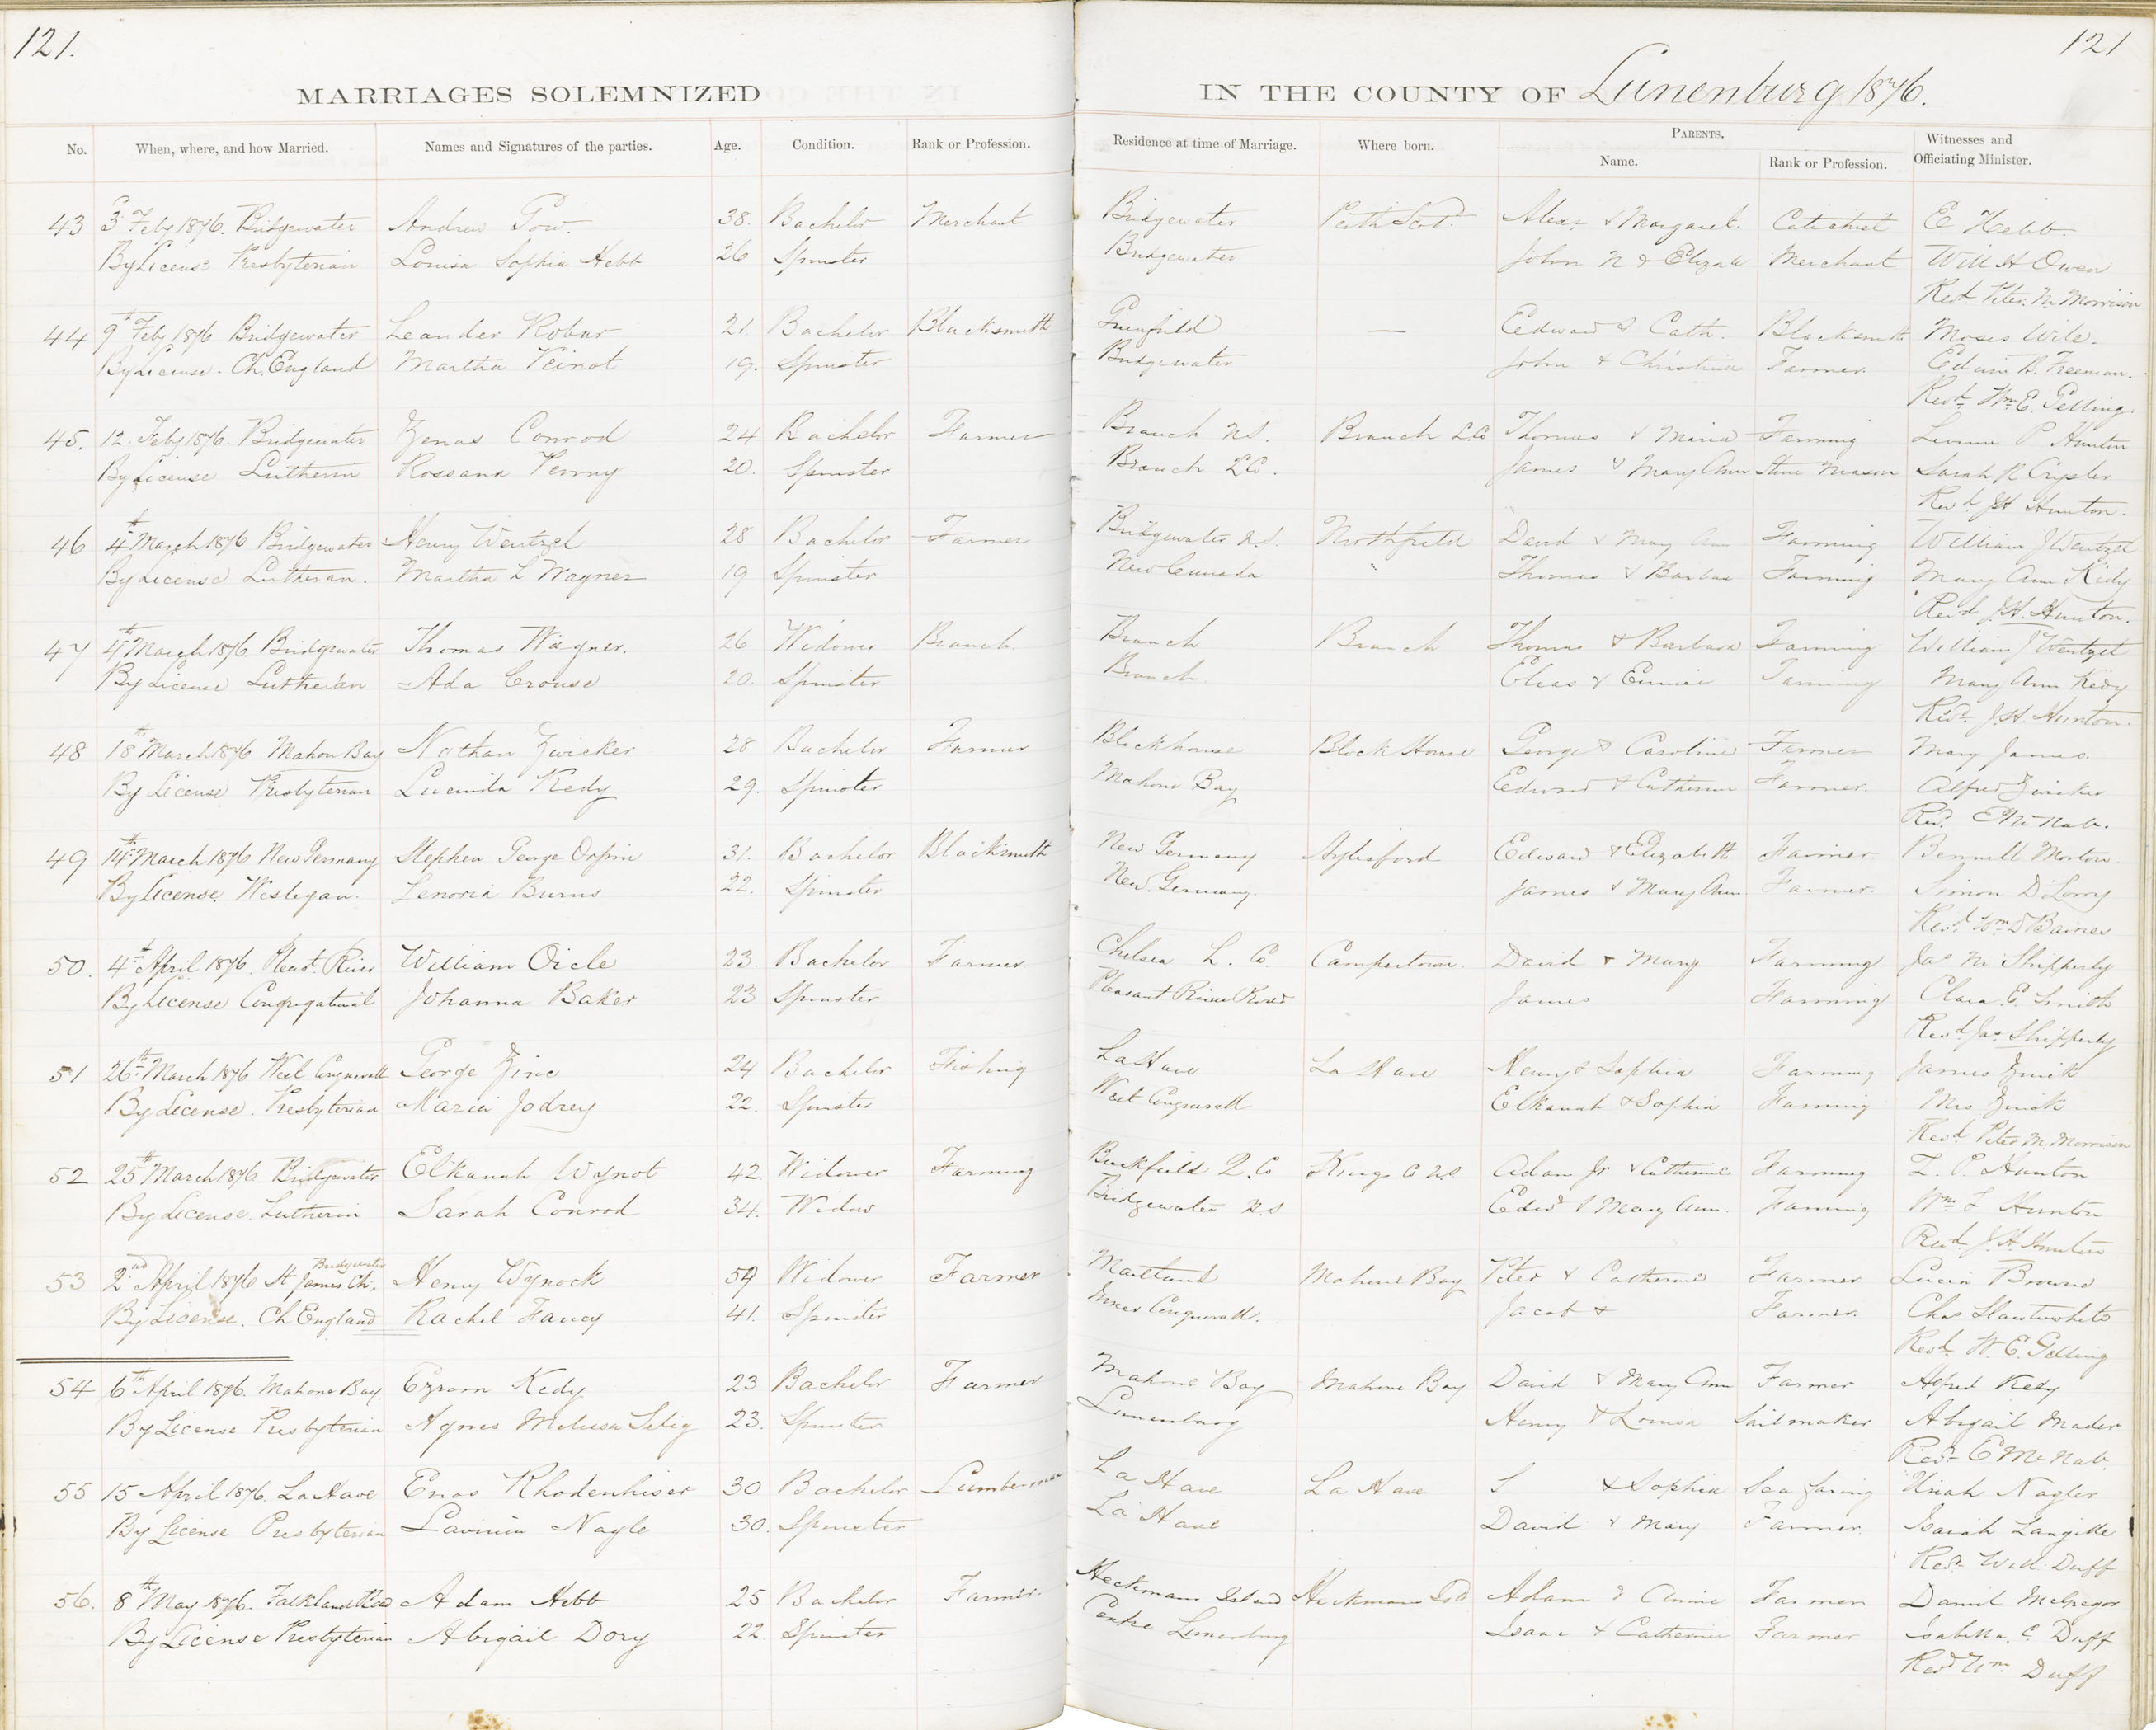 121.
121
MARRIAGES SOLEMNIZED IN THE COUNTY OF Lunenburg 1876.
No. When, where, and how Married. Names and Signatures of the parties. Age. Condition. Rank or Profession. Residence at time of Marriage. Where born. PARENTS. Witnesses and
Name. Rank or Profession. Officiating Minister.
43 3 Feby 1876. Bridgewater Andrew Gow. 38. Bachelor Merchant Bridgewater Perth Scot. Alexr & Margaret. Catechist E Hebb.
By License Presbyterian Louisa Sophia Hebb 26 Spinster Bridgewater John N & Eliza Merchant Will H Owen
Revd. Peter M Morrison
44 9th Feby 1876 Bridgewater Leander Robar 21. Bachelor Blacksmith Greenfield — Edward & Cath. Blacksmith Moses Wile.
By License. Ch. England Martha Veinot 19. Spinster Bridgewater John & Christina Farmer Edwin B. Freeman.
Revd. Wm E. Gelling
45. 12. Feby 1876. Bridgewater Zenas Conrod 24 Bachelor Farmer Branch N.S. Branch L.Co Thomas & Maria Farming P Hunton
By License Lutherin Rossana Venny 20. Spinster Branch L Co. James & Mary Ann Stone Mason Sarah R Crysler
Revd. JH Hunton.
46 4th March 1876 Bridgewater Henry Wentzel 28 Bachelor Farmer Bridgewater N.S. Northfield David & Mary Ann Farming William J Wentzel
By License Lutheran. Martha L Wagner 19 Spinster New Cannada " Thomas & Barbara Farming Mary Ann Kedy
Revd J.H. Hunton.
47 4th March 1876. Bridgewater Thomas Wagner. 26 Widower Branch. Branch Branch Thomas & Barbara Farming William J Wentzel
By License Lutheran Ada Crouse 20. Spinster Branch. Elias & Eunice Farming Mary Ann Kedy
Revd. J.H. Hunton.
48 18th March 1876 Mahon Bay Nathan Zwicker 28 Bachelor Farmer Blockhouse Block House George & Caroline Farmer Mary James.
By License Presbyterian Lucinda Kedy 29. Spinster Mahone Bay Edward & Catherine Farmer. Alfred Zwicker
Revd. E McNab.
49 14th March 1876 New Germany Stephen George Orpin 31. Bachelor Blacksmith New Germany Aylesford Edward & Elizabeth Farmer. Bennell Morton
By License Wesleyan. Lenoria Burns 22. Spinster New Germany. James & Mary Ann Farmer. Simon D Lorry
Revd. Wm D Baines
50. 4th April 1876. Pleast. River William Oicle 23. Bachelor Farmer Chelsea L. Co. Campertown. David & Mary Farming Jas M Shipperly
By License Congregational Johanna Baker 23 Spinster Pleasant River Road James Farming Clara E. Smith
Revd. Jas. Shipperly
51 26th March 1876 West Conquerall George Zinc 24 Bachelor Fishing LaHave La Have Henry & Sophia Farming James Zinck
By License. Presbyterian Maria Jodrey 22. Spinster West Conquerall Elkanah & Sophia Farming Mrs Zinck
Revd. Peter M. Morrison
52 25th March 1876 Bridgewater Elkanah Wagnot 42 Widower Farming Buckfield Q.Co Kings C N.S Adam Jr & Catherine Farming L. P. Hunton
By License. Lutherin Sarah Conrod 34. Widow Bridgewater N.S Edwd & Mary Ann. Farming Wm F Hunton
Revd. J. H. Hunton
53 2nd April 1876 St James Ch. Bridgewater Henry Wagnock 59 Widower Farmer Maitland Mahone Bay Peter & Catherine Farmer Lucin Browne
By License. Ch England Rachel Fancy 41. Spinster Conquerall. Jacob & Farmer. Chas
Revd. W. E. Gelling
54 6th April 1876. Mahone Bay. Ezrom Kedy 23 Bachelor Farmer Mahone Bay Mahone Bay David & Mary Ann Farmer Alfred Kedy
By License Presbyterian Agnes Melissa Selig 23. Spinster Lunenburg Henry & Louisa Sailmaker Abigail Mader
Revd. E McNab.
55 15 April 1876. La Have Enos Rhodenhiser 30 Bachelor Lumberman La Have La Have S & Sophia Sea Faring Uriah Nagler
By License Presbyterian Lavinia Nagle 30. Spinster La Have David & Mary Farmer. Isaiah Langille
Revd. Will Duff
56. 8th May 1876. Falkland Road Adam Hebb 25 Bachelor Farmer. Heckmans Island Heckmans Isd Adam & Annie Farmer Daniel McGregor
By License Presbyterian Abigail Dory 22. Spinster Centre Lunenburg Isaac & Catherine Farmer Isabella. C. Duff
Revd Wm Duff